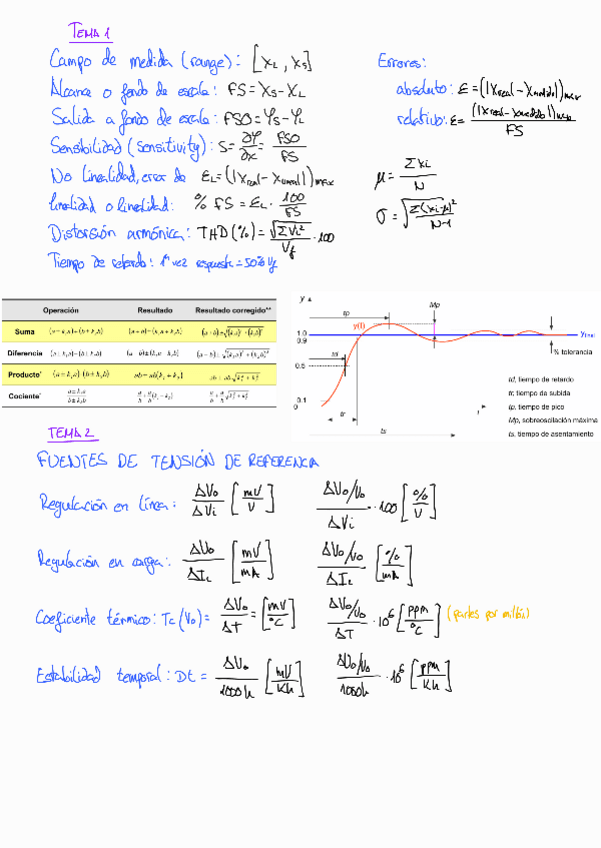 TEMA 1
Campo de medida (range): [XL, XS]
Alcance o fondo de escala: FS = XS - XL
Salida a fondo de escala: FSO = YS - YL
Sensibilidad (sensitivity): S = ∂Y/∂x = FSO/FS
No linealidad, error de EL = (|Xreal - Xlineal|)max
linealidad o linealidad: % FS = EL · 100/FS
Distorsión armónica: THD (%) = √ΣVi²/Vf · 100
Tiempo de retardo: 1ª vez respuesta = 50% Yf
Errores:
absoluto: ε = (|Xreal - Xmedido|)max
relativo: ε = (|Xreal - Xmedido|)max/FS
μ = ΣXi/N
σ = √Σ(Xi-μ)²/N-1
Operación Resultado Resultado corregido**
Suma
Diferencia
Producto*
Cociente*
y
tp
Mp
y(t)
1.0
0.9
td
0.5
0.1
tr
t
ts
% tolerancia
td, tiempo de retardo
tr, tiempo de subida
tp, tiempo de pico
Mp, sobreoscilación máxima
ts, tiempo de asentamiento
TEMA 2
FUENTES DE TENSIÓN DE REFERENCIA
Regulación en línea: ΔVo/ΔVi [mV/V] ΔVo/Vo/ΔVi · 100 [%/V]
Regulación en carga: ΔVo/ΔIL [mV/mA] ΔVo/Vo/ΔIL [%/mA]
Coeficiente térmico: Tc (Vo) = ΔVo/ΔT = [mV/°C] ΔVo/Vo/ΔT · 10⁶ [ppm/°C] (partes por millón)
Estabilidad temporal: Dt = ΔVo/1000h [mV/Kh] ΔVo/Vo/1000h · 10⁶ [ppm/Kh]